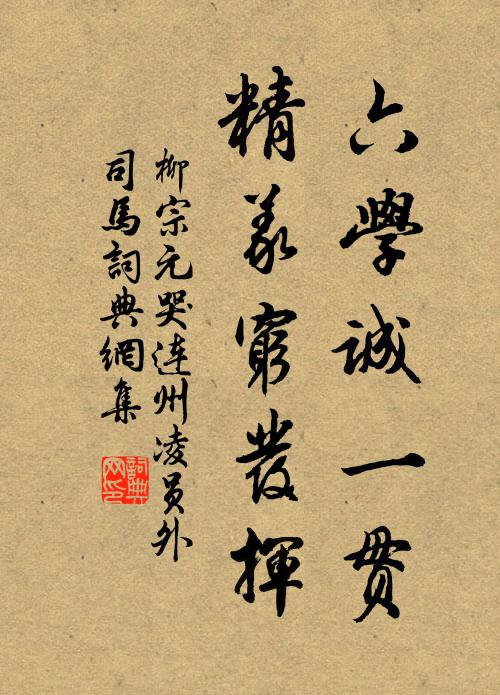 六學誠一貫
精義窮發揮
柳宗元哭連州凌員外
司馬詞典網集
詞典
网印